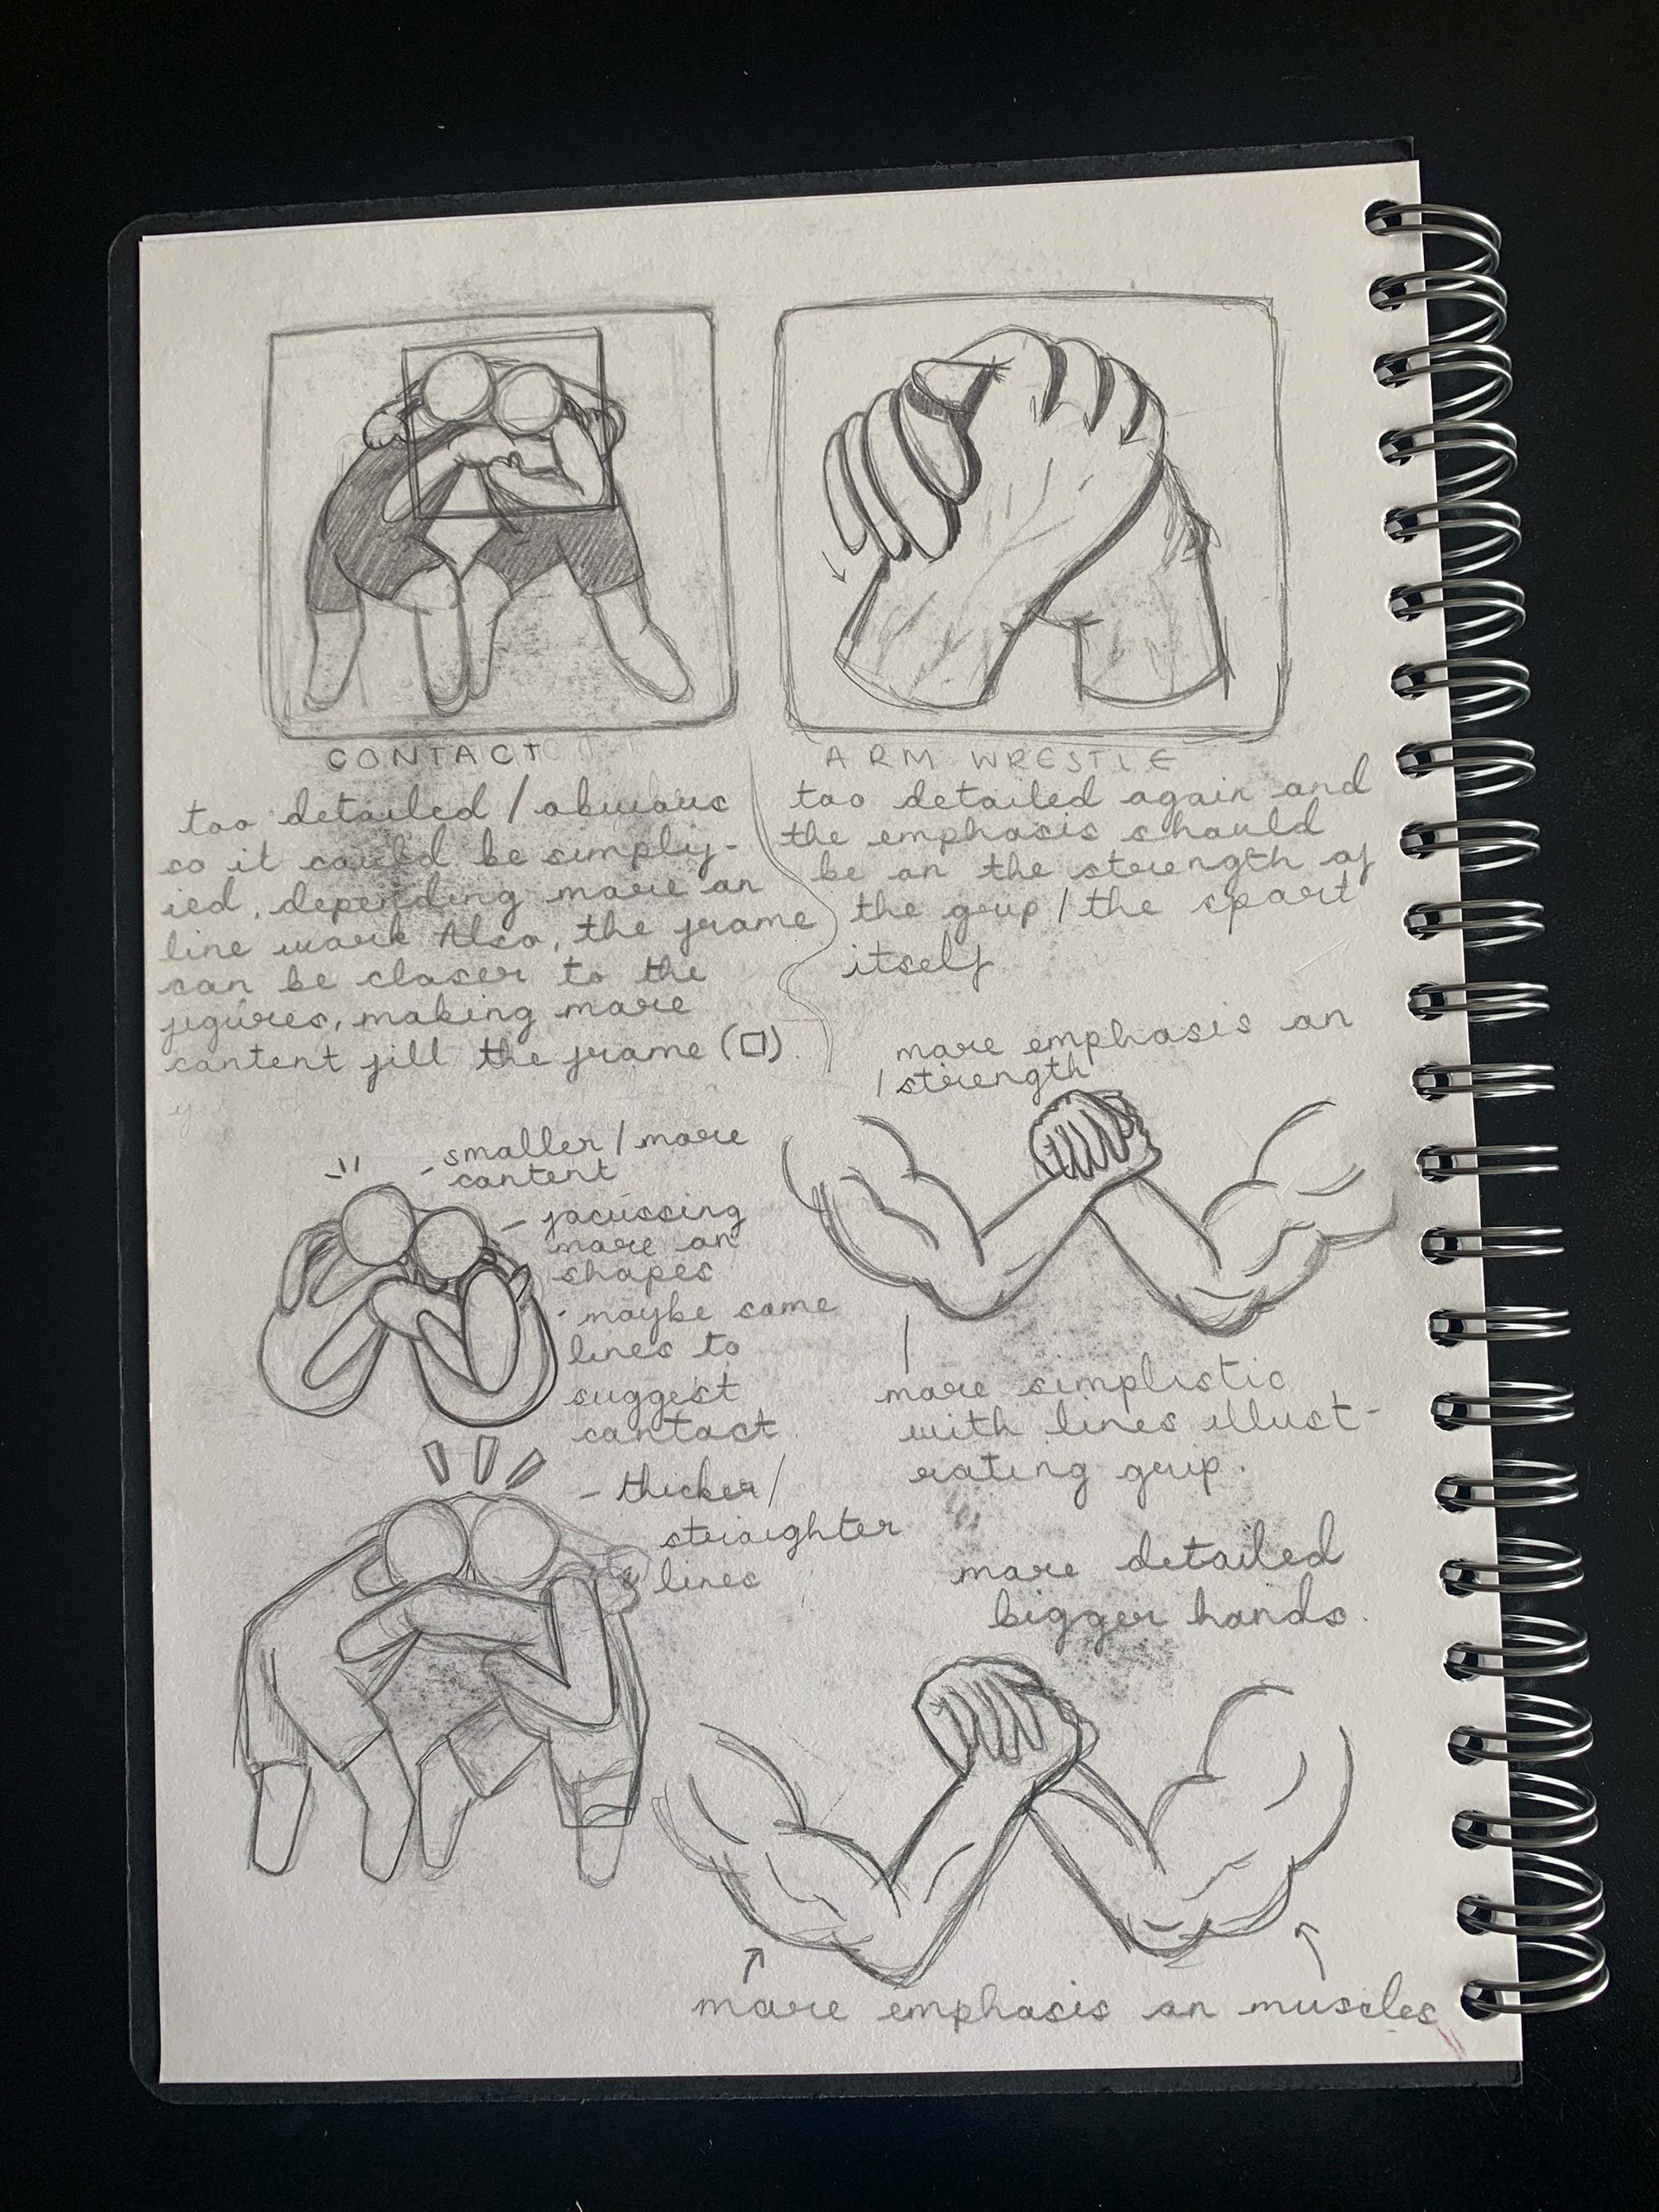 CONTACT
too detailed / obvious
so it could be simplif-
ied, depending more on
line work Also, the frame
can be closer to the
figures, making more
content fill the frame (□).
ARM WRESTLE
too detailed again and
the emphasis should
be on the strength of
the grip / the sport
itself
- smaller / more
content
- focussing
more on
shapes
- maybe some
lines to
suggest
contact.
- thicker /
straighter
lines
more emphasis on
strength
more simplistic
with lines illust-
rating grip.
more detailed
bigger hands.
more emphasis on muscles